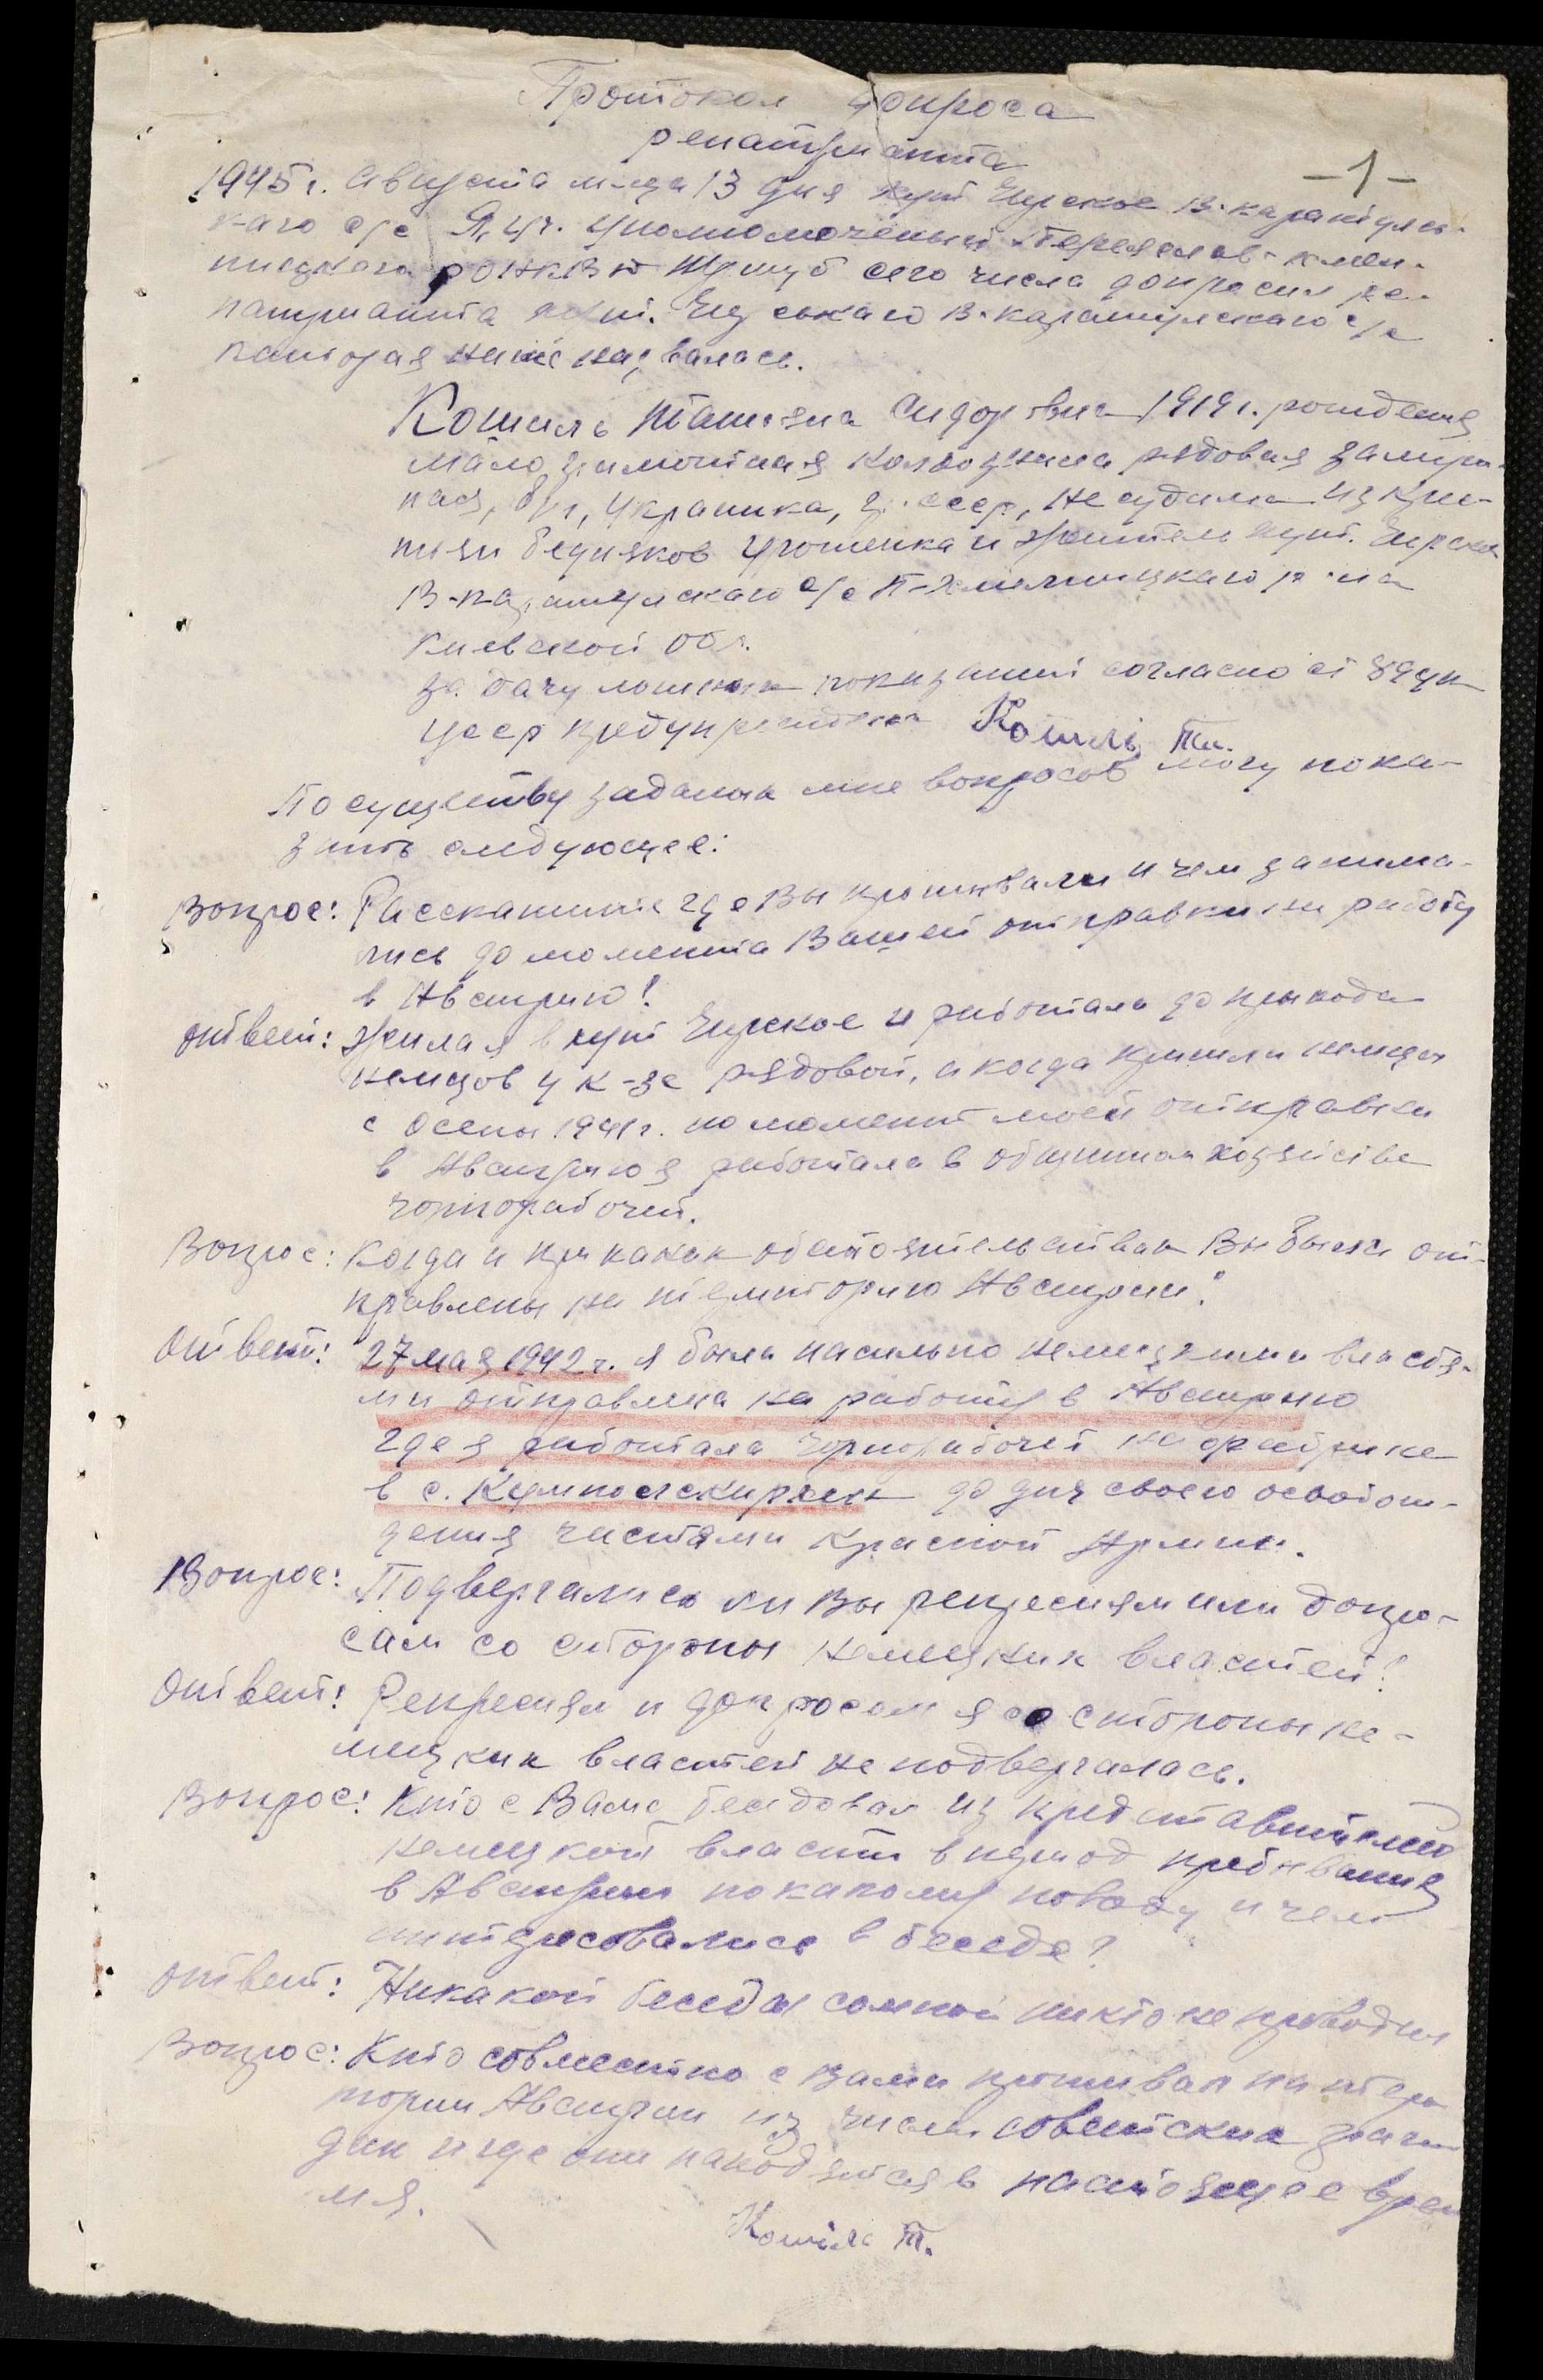 Протокол допроса
репатрианта
-1-
1945 г. Августа м-ца 13 дня хут Гирское В-каратульс-
каго с/с Я, уч. уполномоченый Переяслав-хмел-
ницкого РОНКВД сего числа допросил ре-
патрианта хут. В-каратульскаго с/с
которая ниже назвалась.
Кошиль Татияна Сидоровна 1919 г. рождения
малограмотная колхозница рядовая замуж-
няя, б/п, украинка, гр. ссср, не судима из крес-
тьян бедняков уроженка и житель хут. Гирское
В-каратульскаго с/с П-Хмельницкаго р-на
Киевской обл.
За дачу ложных показаний согласно ст 89 ук
усср предупреждена Кошиль Т.
По существу заданых мне вопросов могу пока-
зать следующее:
Вопрос: Расскажите где Вы проживали и чем занима-
лись до момента Вашей отправки на работу
в Австрию!
Ответ: Жила я в хут Гирское и работала до прихода
немцов у к-зе рядовой, а когда пришли немцы
с осены 1941 г. по момент моей отправки
в Австрию я работала в общинном хозяйстве
чорнорабочей.
Вопрос: Когда и при каких обстоятельствах Вы были от-
правлены на территорию Австрии?
Ответ: 27 мая 1942 г. я была насильно немецкими властя-
ми отправлена на работу в Австрию
где я работала чорнорабочей на фабрике
в с. до дня своего освобож-
дения частями Красной Армии.
Вопрос: Подвергались ли Вы репресиям или допро-
сам со стороны немецких властей!
Ответ: Репресиям и допросам я со стороны не-
мецких властей не подвергалась.
Вопрос: Кто с Вами беседовал из представителей
немецкой власти в период пребывания
в Австрии по какому поводу и чем
интересовались в беседе?
Ответ: Никакой беседы со мной никто не проводил
Вопрос: Кто совместно с Вами проживал на терри
тории Австрии из числа советских граж
дан и где они находятся в настоящее вре
мя.
Кошиль Т.